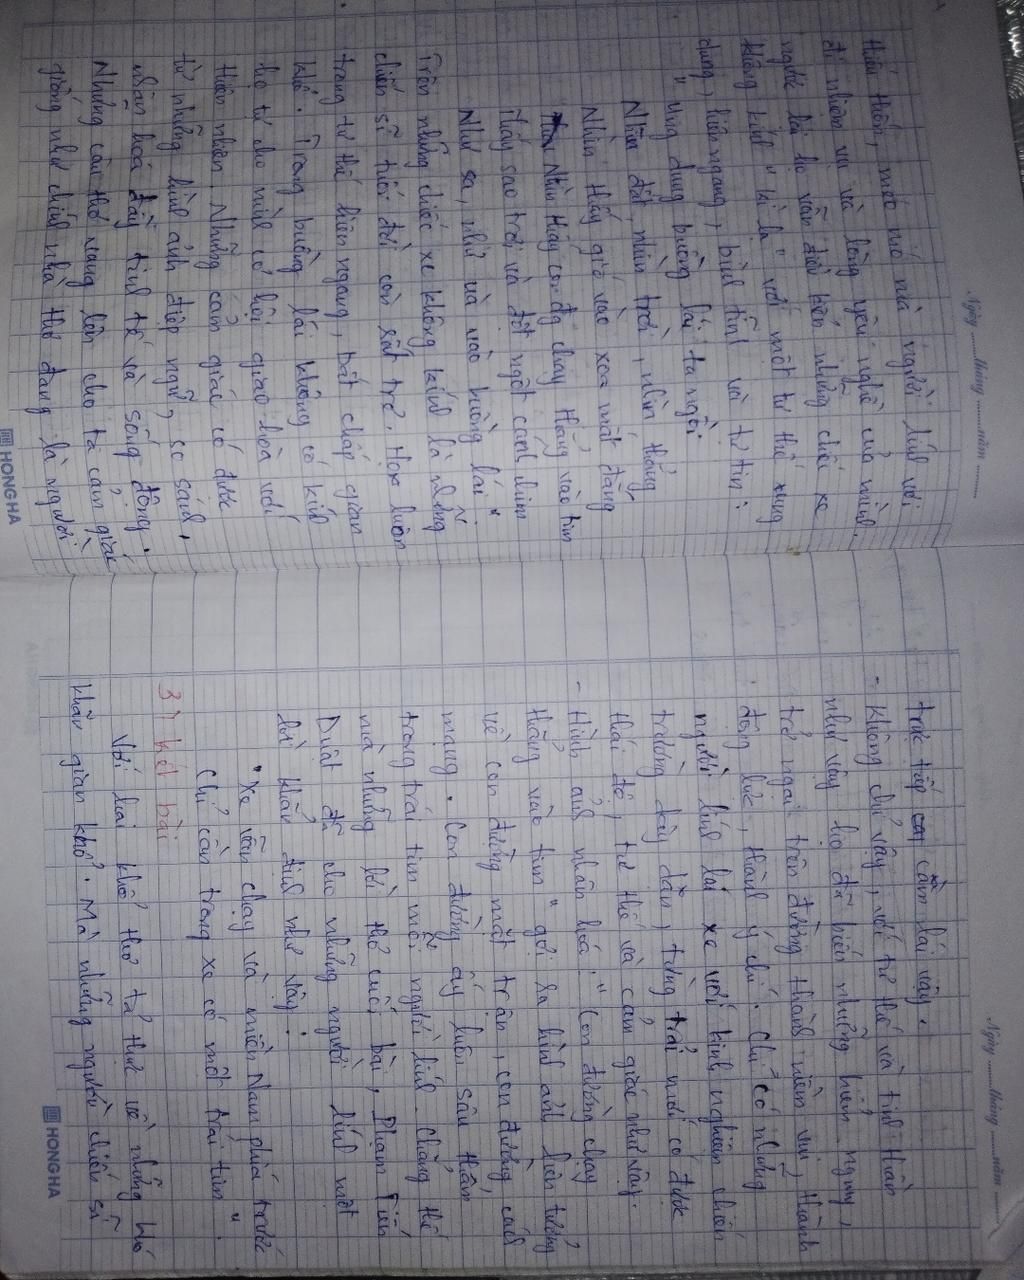 Ngày ........ tháng ........ năm ........
thiếu thốn, mất mát mà người lính với
đi nhiệm vụ và lòng yêu nghề của mình.
nghề lái họ vẫn điều khiển những chiếc xe
không kính "kì lạ" với một tư thế ung
dung, hiên ngang, bình tĩnh và tự tin:
" ung dung buồng lái ta ngồi
Nhìn đất, nhìn trời, nhìn thẳng
Nhìn thấy gió vào xoa mắt đắng
Nhìn thấy con đg chạy thẳng vào tim
Thấy sao trời và đột ngột cánh chim
Như sa, như ùa vào buồng lái "
Trên những chiếc xe không kính là những
chiến sĩ tuổi đời còn rất trẻ. Họ luôn
trong tư thế hiên ngang, bất chấp gian
khổ. Trong buồng lái không có kính
họ tự cho mình cơ hội giao hòa với
thiên nhiên. Những cảm giác có được
từ những hình ảnh điệp ngữ, so sánh,
nhân hoá đầy tinh tế và sống động.
Những câu thơ vang lên cho ta cảm giác
giống như chính nhà thơ đang là người
HONG HA
Ngày ........ tháng ........ năm ........
trực tiếp cầm lái vậy.
- Không chỉ vậy, với tư thế và tinh thần
như vậy họ đã biến những hiểm nguy,
trở ngại trên đường thành niềm vui, thành
động lực, thành ý chí. Chỉ có những
người lính lái xe với kinh nghiệm chiến
trường dày dặn, từng trải mới có được
thái độ, tư thế và cảm giác như vậy.
- Hình ảnh nhân hoá: " Con đường chạy
thẳng vào tim " gợi ra hình ảnh liên tưởng
về con đường mặt trận, con đường cách
mạng. Con đường ấy luôn sâu thẳm
trong trái tim mỗi người lính. Chẳng thế
mà những lời thơ cuối bài, Phạm Tiến
Duật đã cho những người lính một
lời khẳn định như vậy:
" Xe vẫn chạy vì miền Nam phía trước
Chỉ cần trong xe có một trái tim ".
3) kết bài
Với hai khổ thơ tả thực về những khó
khăn gian khổ. Mà những người chiến sĩ
HONG HA